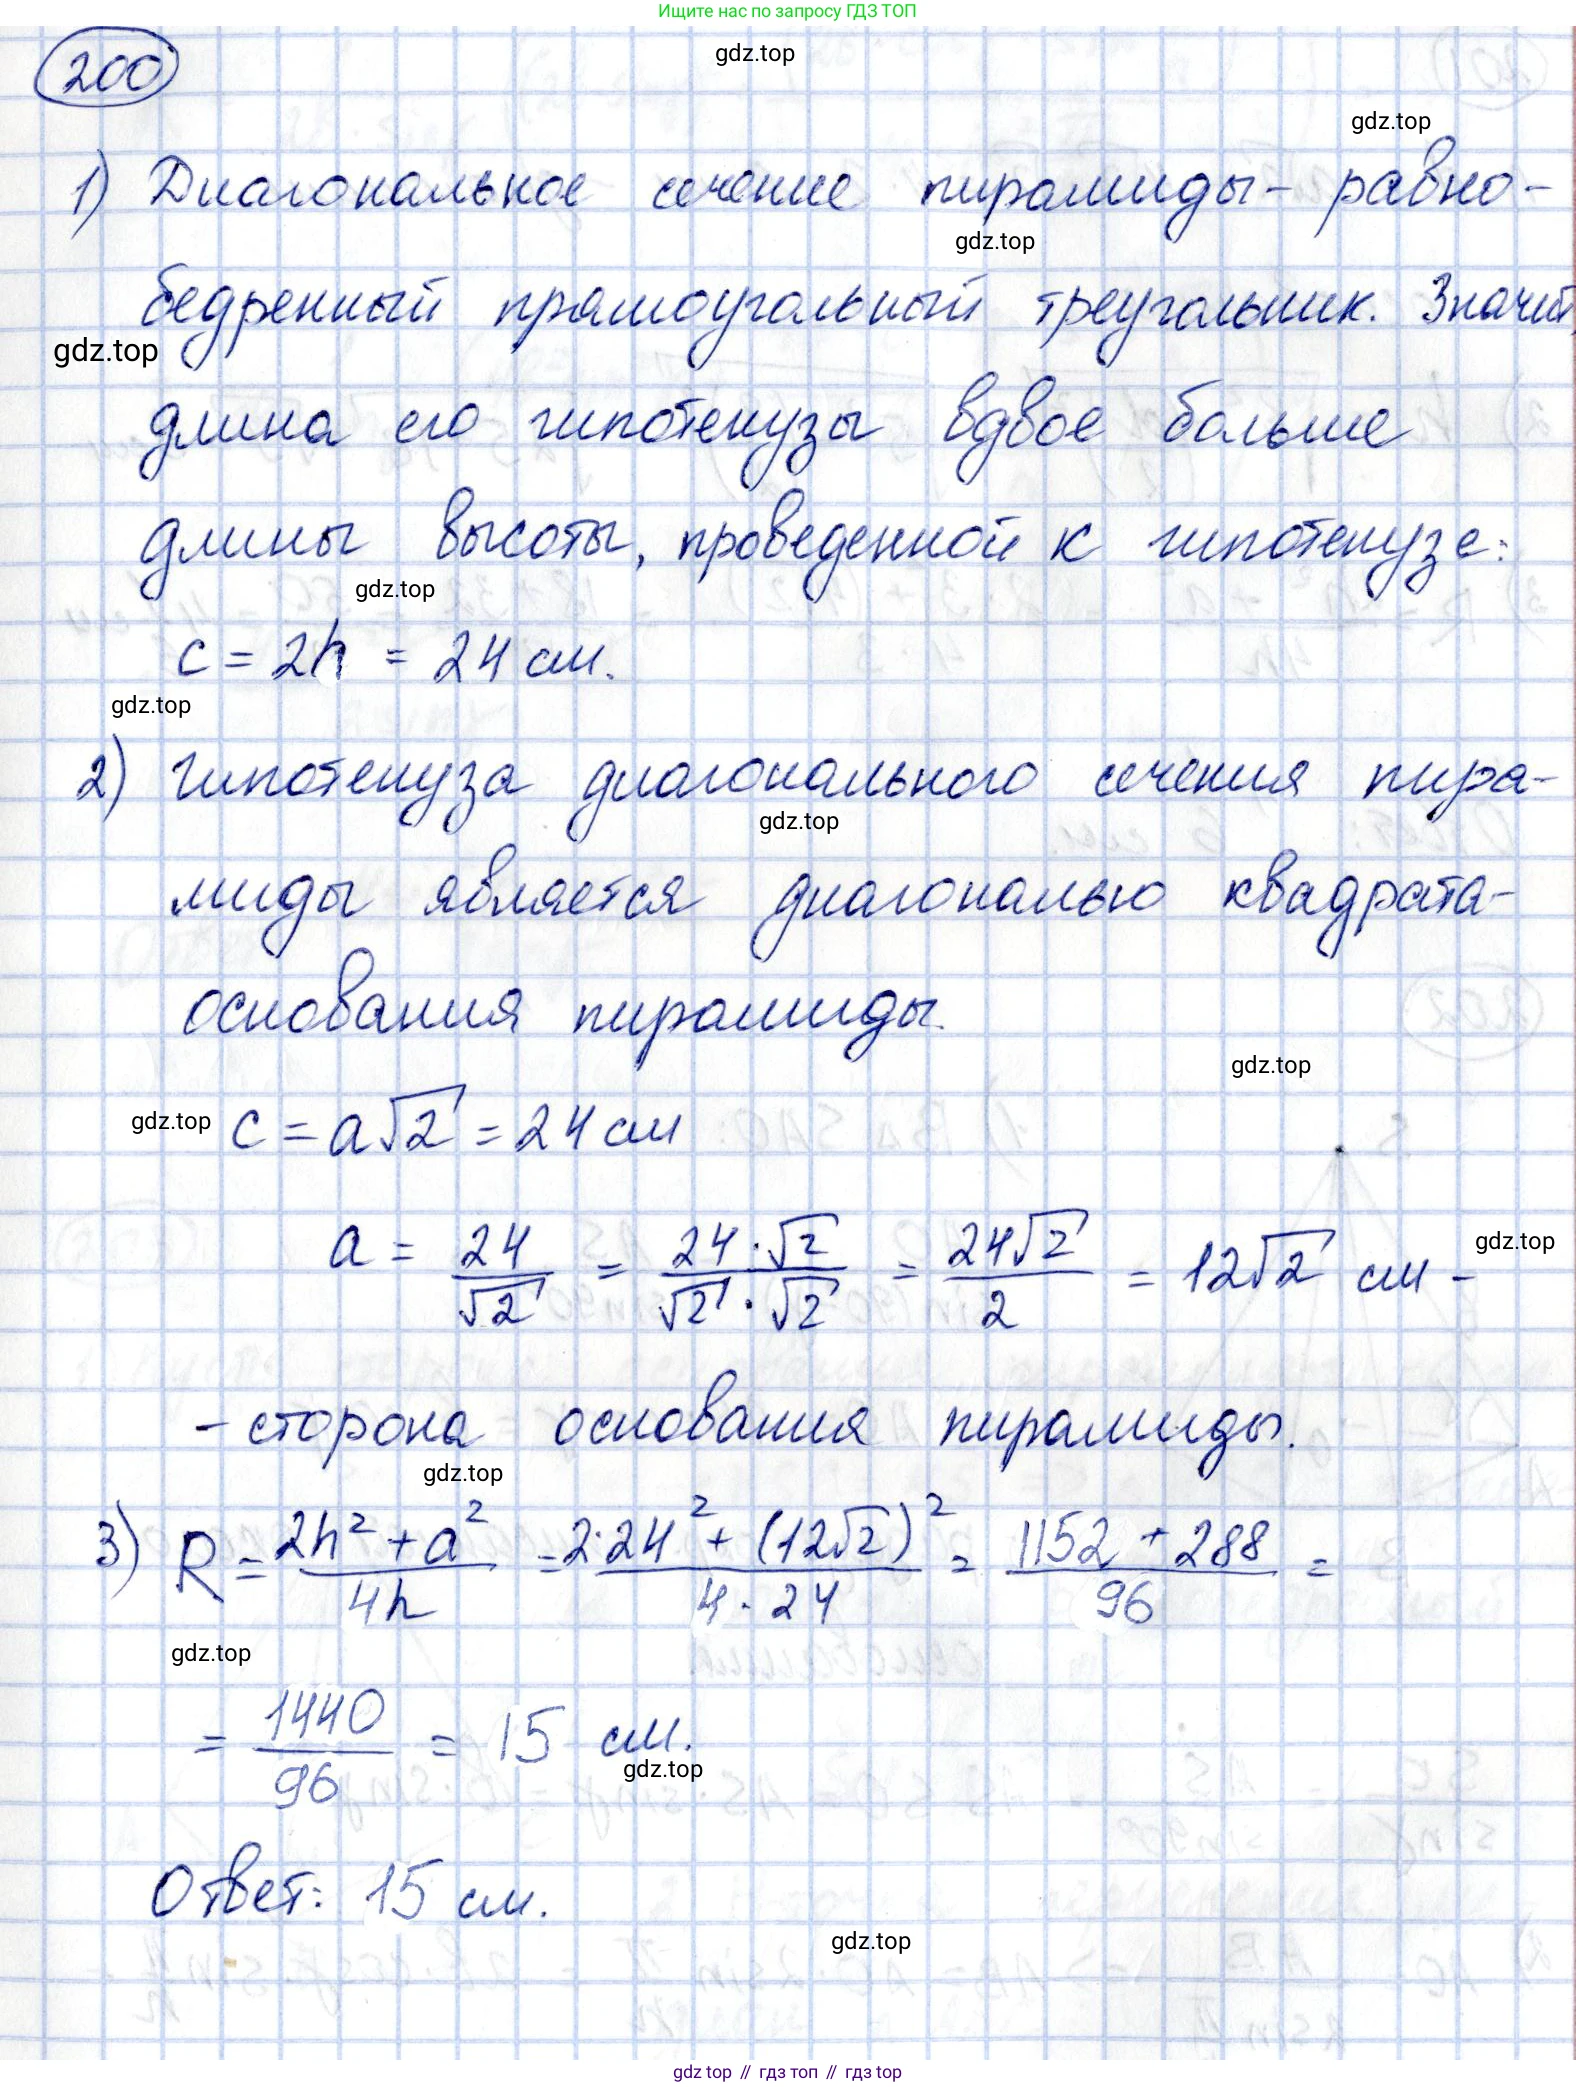 Ищите нас по запросу ГДЗ ТОП
200
gdz.top
gdz.top
1) Диагональное сечение пирамиды - равно-
gdz.top
бедренный прямоугольный треугольник. Значит,
gdz.top
длина его гипотенузы вдвое больше
длины высоты, проведенной к гипотенузе:
gdz.top
c = 2h = 24 см.
gdz.top
2) Гипотенуза диагонального сечения пира-
gdz.top
миды является диагональю квадрата-
основания пирамиды.
gdz.top
gdz.top
c = a√2 = 24 см
a = 24/√2 = 24·√2/√2·√2 = 24√2/2 = 12√2 см -
gdz.top
- сторона основания пирамиды.
gdz.top
3) R = 2h² + a²/4h = 2·24² + (12√2)²/4·24 = 1152 + 288/96 =
gdz.top
= 1440/96 = 15 см.
gdz.top
Ответ: 15 см.
gdz.top
gdz top // гдз топ // гдз top